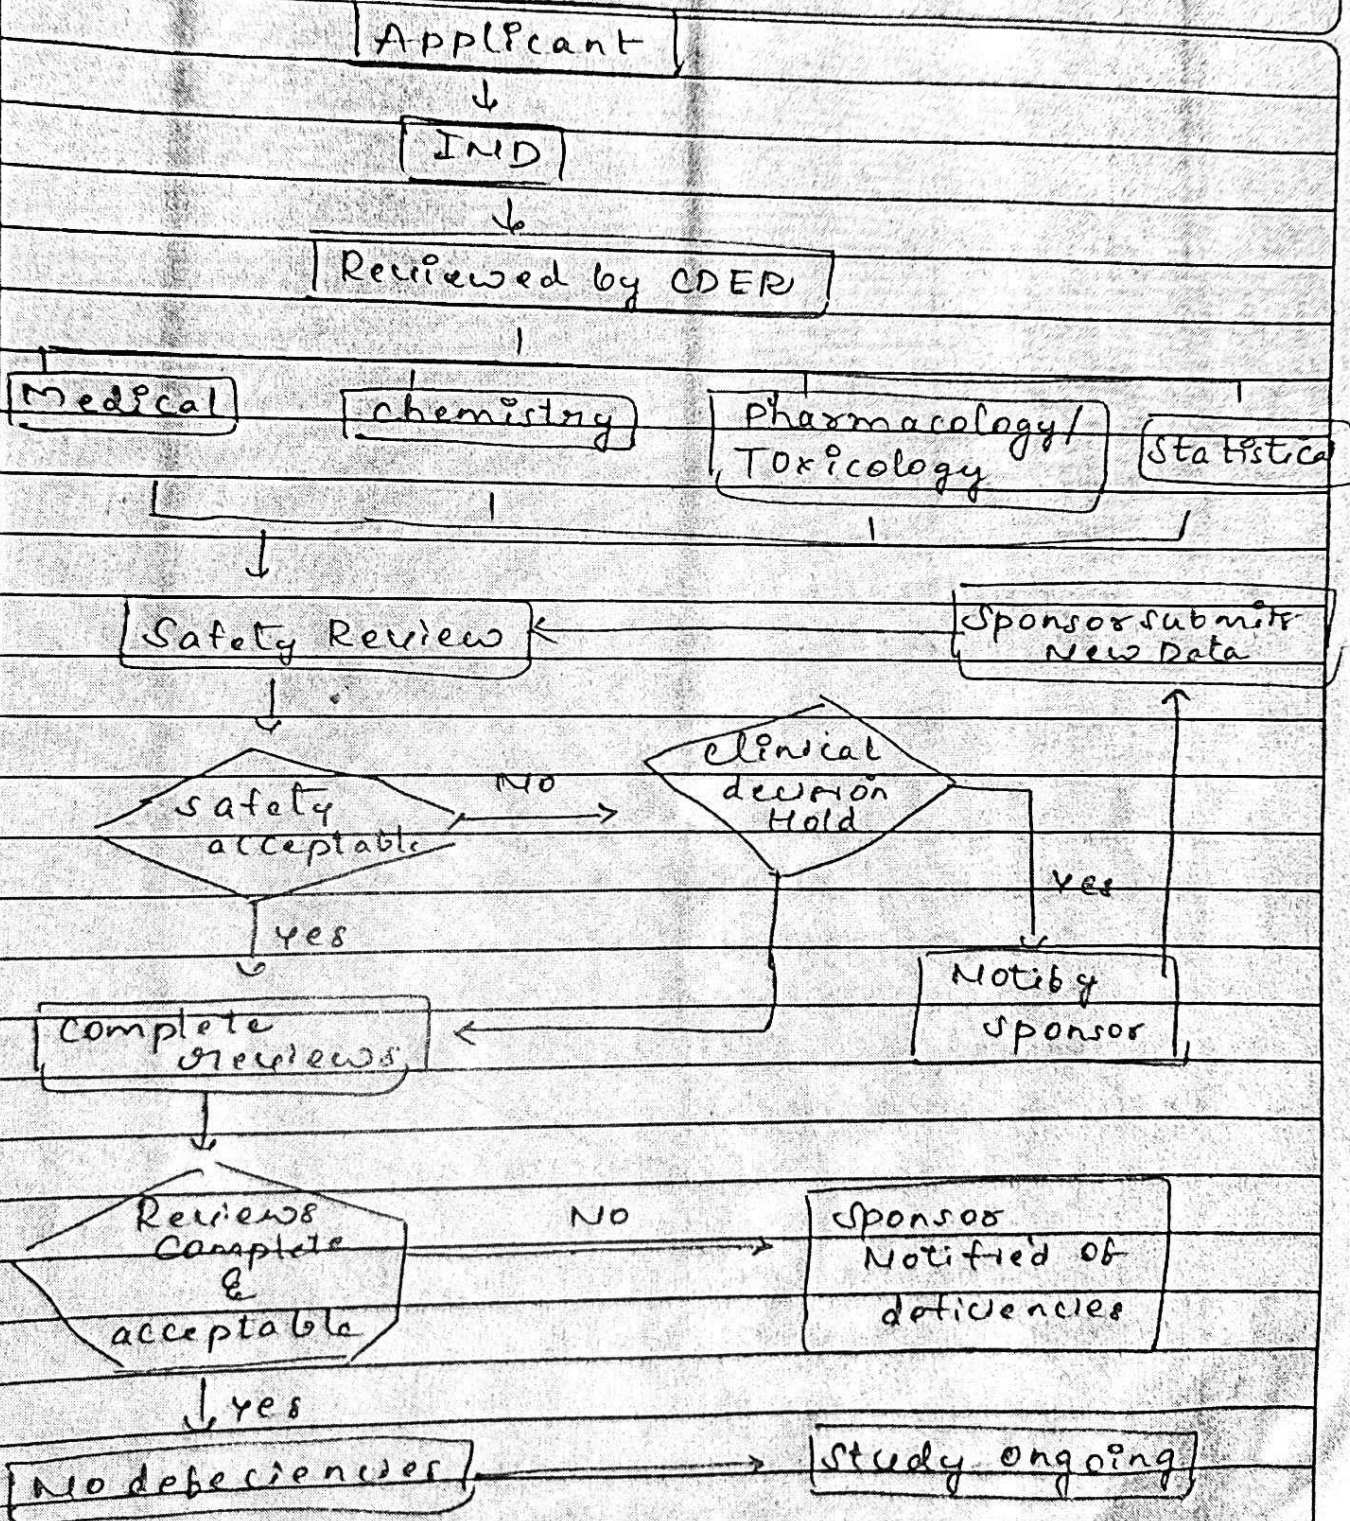 Applicant
IND
Reviewed by CDER
Medical
chemistry
Pharmacology/
Toxicology
Statistical
Safety Review
Sponsor submits
New Data
Safety
acceptable
NO
Clinical
decision
Hold
Yes
yes
Notify
sponsor
complete
reviews
Reviews
Complete
&
acceptable
NO
Sponsor
Notified of
deficiencies
yes
No defeciencies
Study ongoing